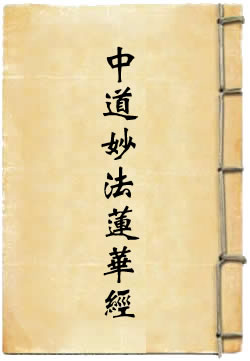 中道妙法蓮華經